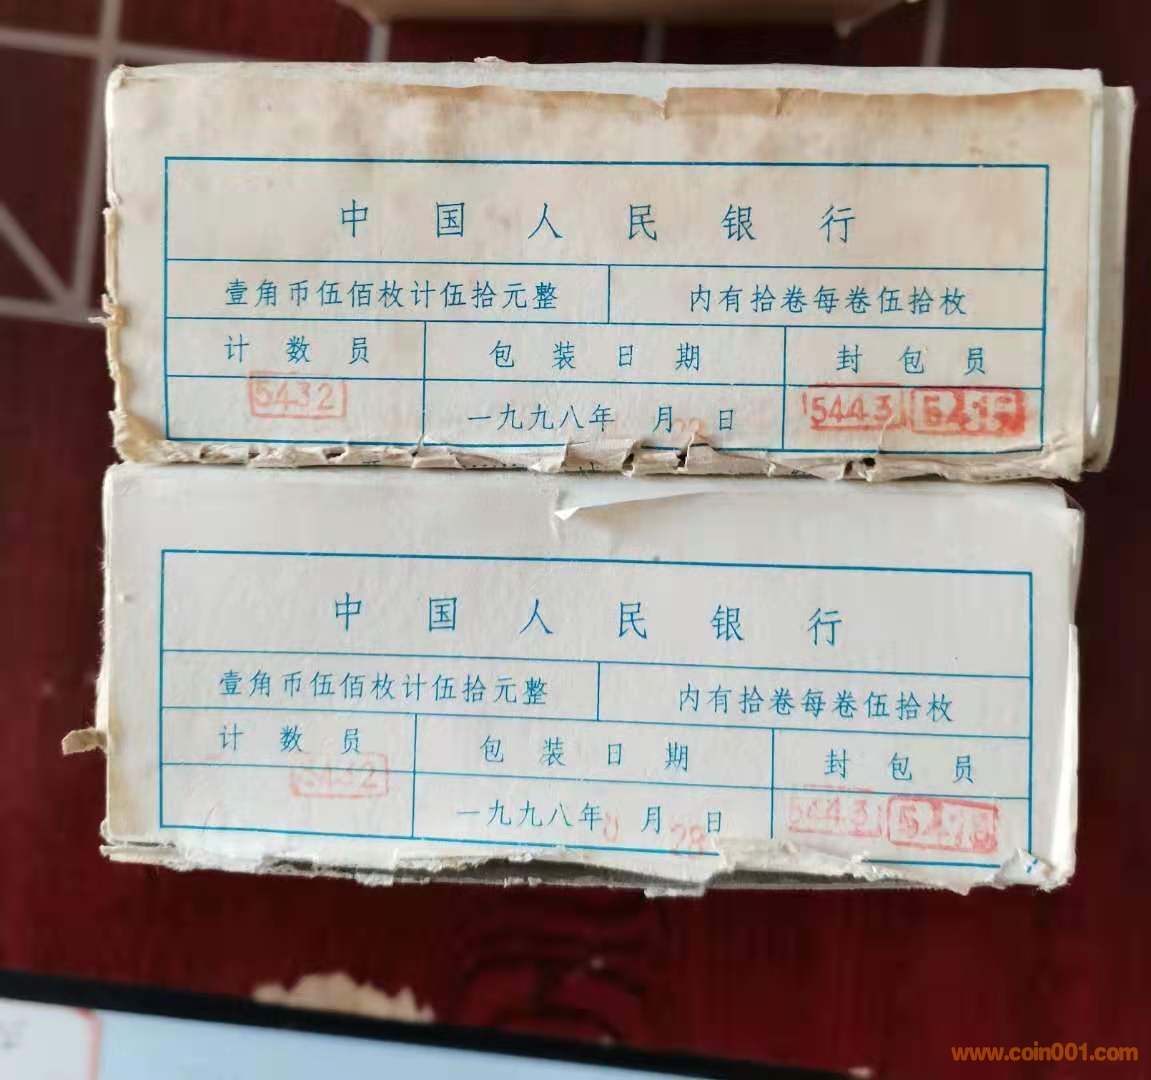 中国人民银行
壹角币伍佰枚计伍拾元整 内有拾卷每卷伍拾枚
计数员 包装日期 封包员
5432 一九九八年 月 日 5443
中国人民银行
壹角币伍佰枚计伍拾元整 内有拾卷每卷伍拾枚
计数员 包装日期 封包员
5432 一九九八年8月28日 5443
www.coin001.com